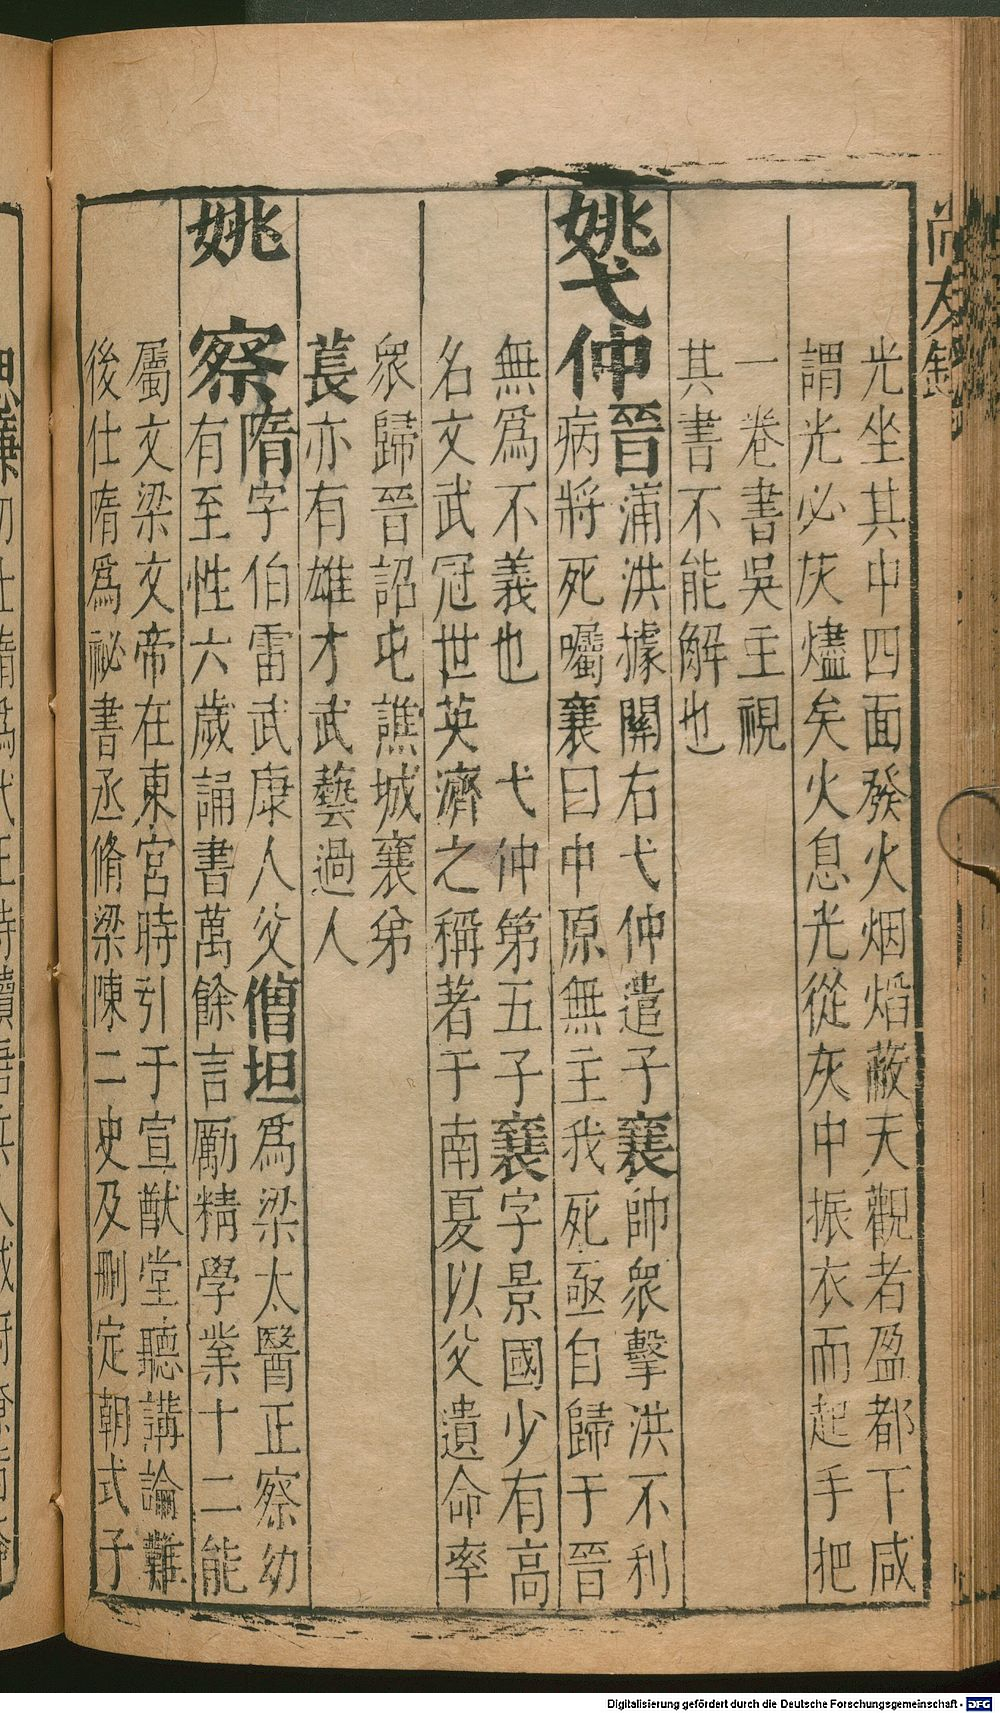 尚友錄
光坐其中四面發火烟焰蔽天觀者盈都下咸
謂光必灰燼矣火息光從灰中振衣而起手把
一卷書吳主視
其書不能解也
姚弋仲晉蒲洪據關右弋仲遣子襄帥衆擊洪不利
病將死囑襄曰中原無主我死亟自歸于晉
無爲不義也　弋仲第五子襄字景國少有高
名文武冠世英濟之稱著于南夏以父遺命率
衆歸晉詔屯譙城襄弟
萇亦有雄才武藝過人
姚察隋字伯雷武康人父僧坦爲梁太醫正察幼
有至性六歲誦書萬餘言厲精學業十二能
屬文梁文帝在東宮時引于宣猷堂聽講論難
後仕隋爲祕書丞脩梁陳二史及刪定朝式子
思廉初仕隋爲代王侍讀
Digitalisierung gefördert durch die Deutsche Forschungsgemeinschaft - DFG